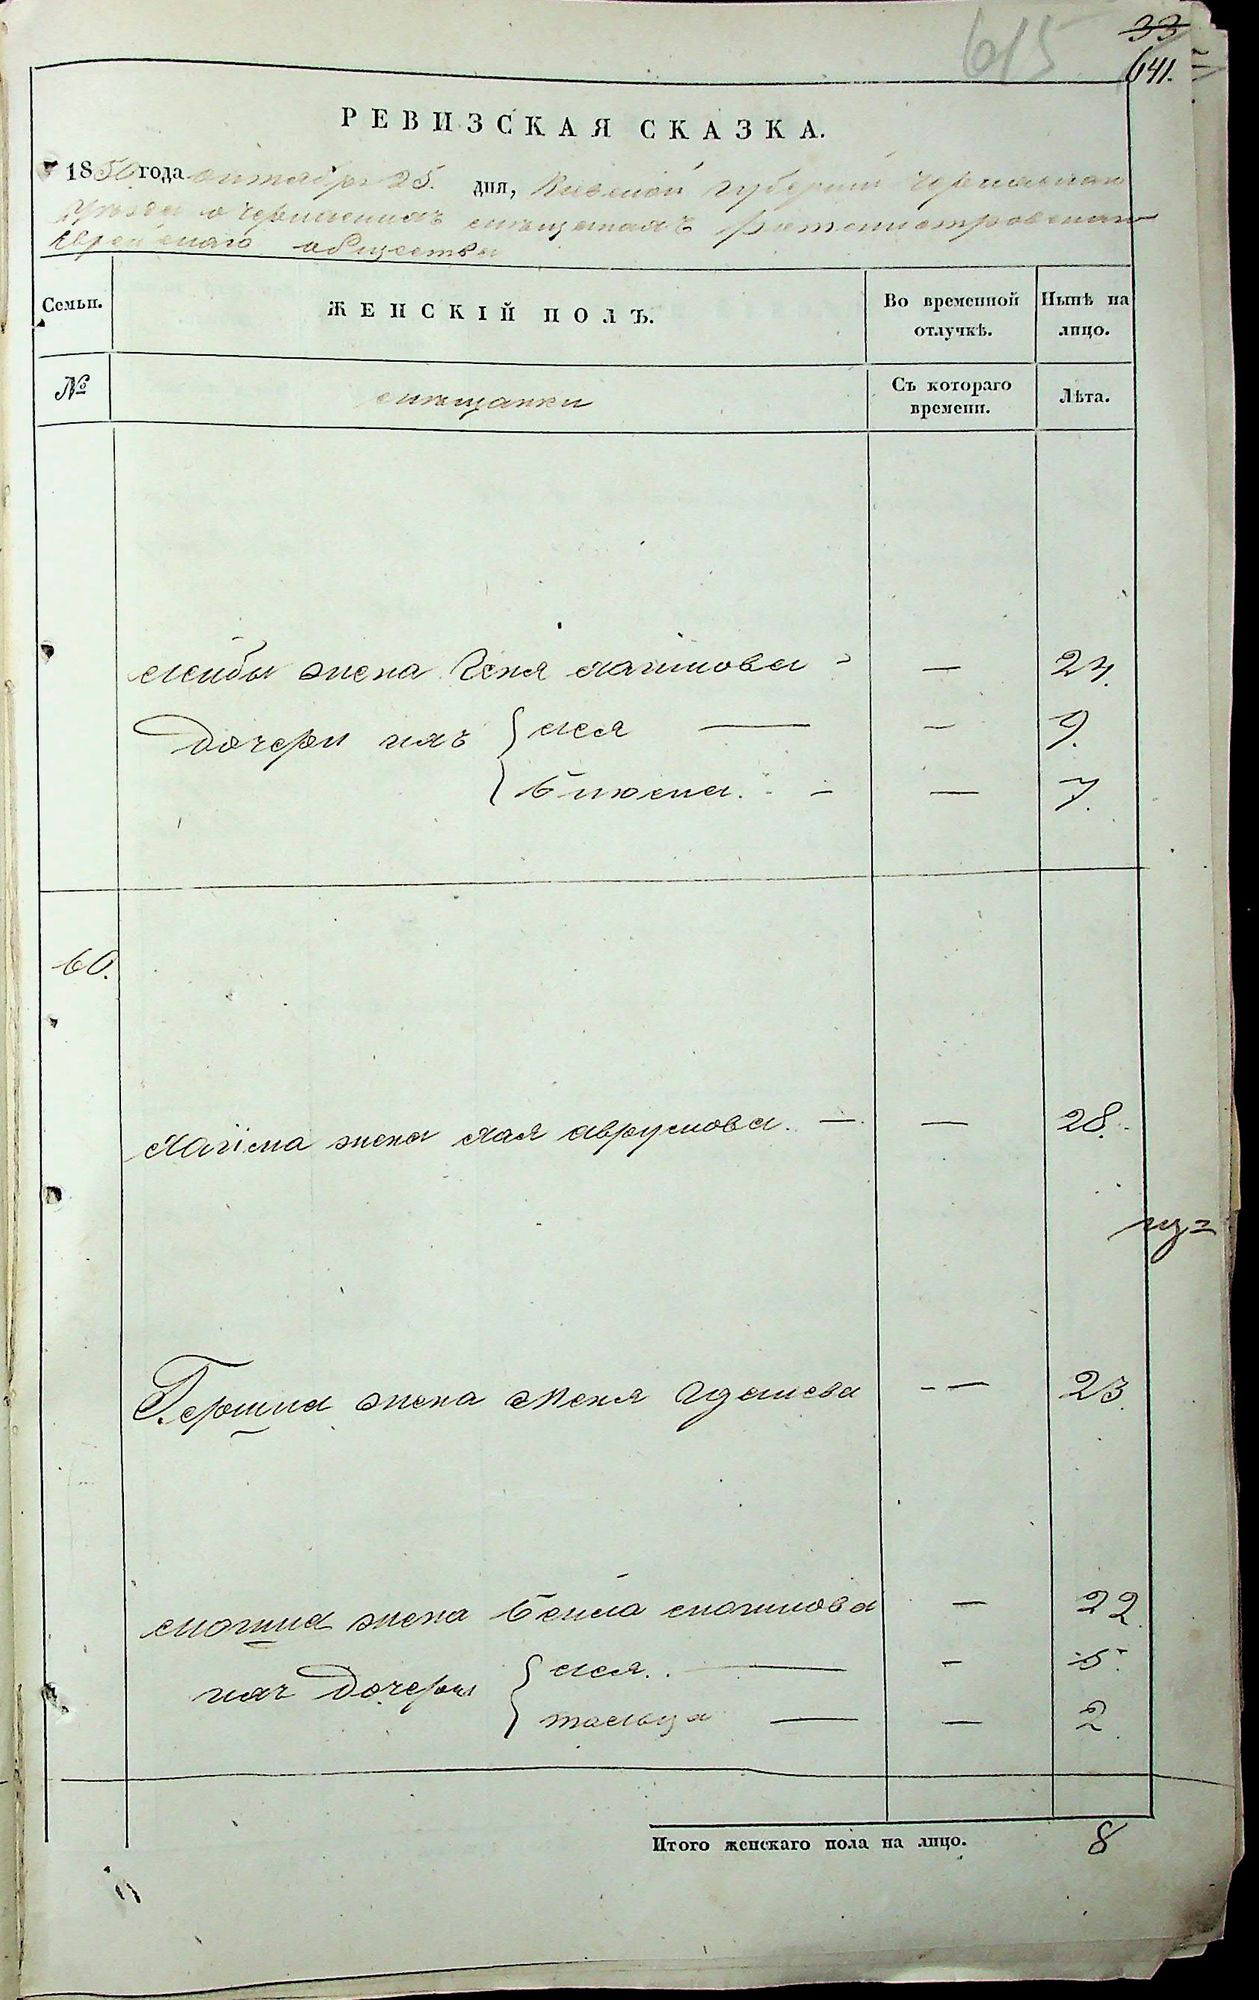 615
33
641.
РЕВИЗСКАЯ СКАЗКА.
1850 года октября 25. дня, Киевской губернии Черкаскаго
уезда о черкаскихъ мещанахъ Ротмистровскаго
Еврейскаго общества
Семьи. ЖЕНСКІЙ ПОЛЪ. Во временной отлучкѣ. Нынѣ на лицо.
№ мещанки Съ котораго времени. Лѣта.
Лейбы жена Геня Хаимова — 24.
Дочери ихъ Лея — — 9.
Блюма. — — 7.
60.
Хаима жена Хая Аврумова. — — 28.
Гершка жена Меня Идамева — 23.
Мошка жена Бейла Мошкова — 22.
ихъ дочери Лея. — — 5.
— — 2
Итого женскаго пола на лицо. 8